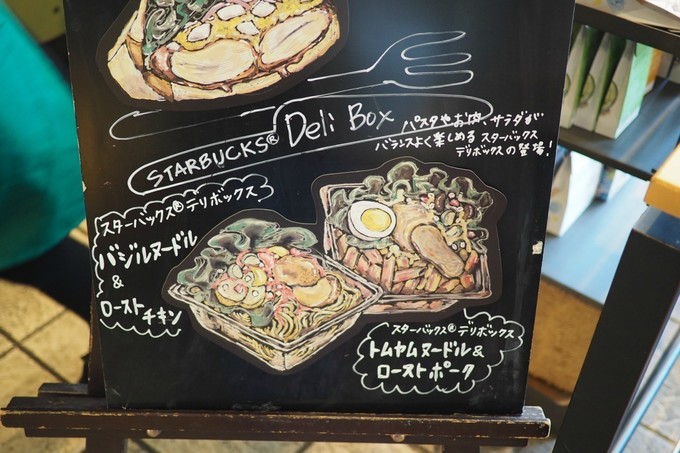 STARBUCKS® Deli Box
パスタやお肉、サラダが
バランスよく楽しめる スターバックス
デリボックスの登場!
スターバックス® デリボックス
バジルヌードル
&
ロースト
チキン
スターバックス® デリボックス
トムヤムヌードル&
ローストポーク